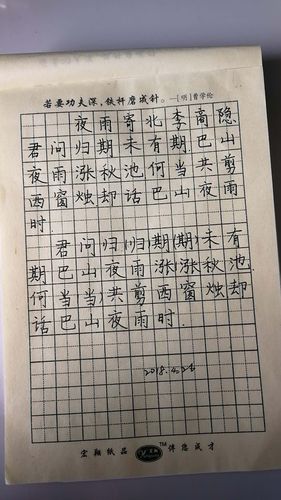 若要功夫深,铁杵磨成针。—[明]曹学佺
夜雨寄北李商隐
君问归期未有期巴山
夜雨涨秋池何当共剪
西窗烛却话巴山夜雨
时
君问归(归)期(期)未有
期巴山夜雨涨涨秋池.
何当(当)共剪西窗烛却
话巴山夜雨时.
2018.4.26
宏翔纸品 TM 伴您成才